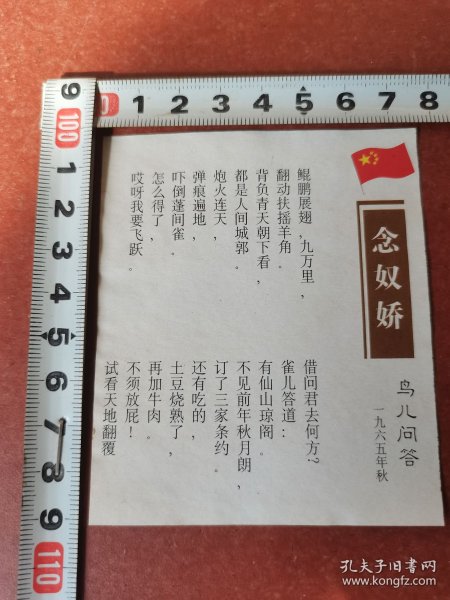 念奴娇
鸟儿问答
一九六五年秋
鲲鹏展翅,九万里,
翻动扶摇羊角.
背负青天朝下看,
都是人间城郭.
炮火连天,
弹痕遍地,
吓倒蓬间雀.
怎么得了,
哎呀我要飞跃.
借问君去何方?
雀儿答道:
有仙山琼阁.
不见前年秋月朗,
订了三家条约.
还有吃的,
土豆烧熟了,
再加牛肉.
不须放屁!
试看天地翻覆
0 1 2 3 4 5 6 7 8
9 100 1 2 3 4 5 6 7 8 9 110
孔夫子旧书网
www.kongfz.com